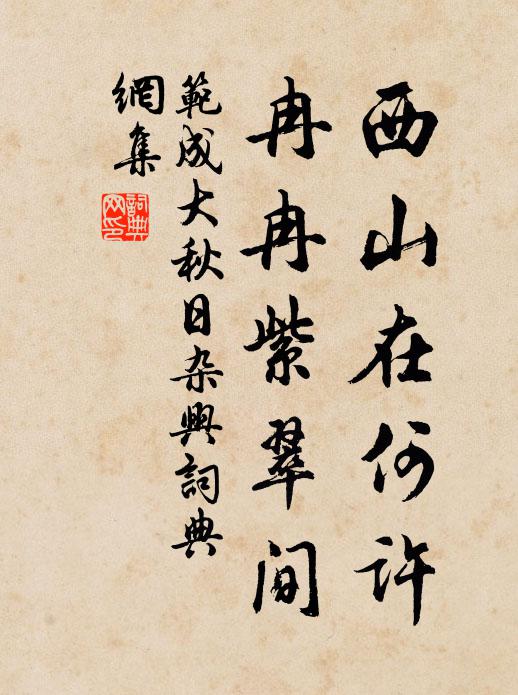 西山在何許
冉冉紫翠間
範成大秋日杂興詞典
網集
詞典
网印